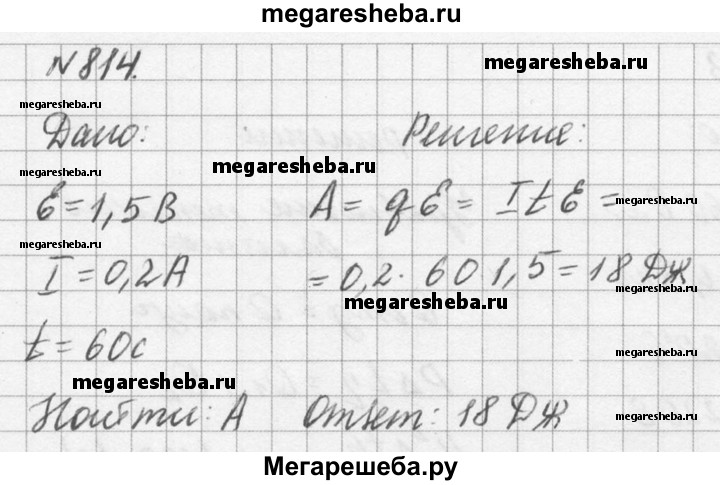 megaresheba.ru
№814.
megaresheba.ru
megaresheba.ru
Дано: Решение:
megaresheba.ru
Ɛ = 1,5 В A = qƐ = ItƐ =
megaresheba.ru
megaresheba.ru
I = 0,2 А = 0,2 · 60 1,5 = 18 Дж
megaresheba.ru
megaresheba.ru
t = 60 с
megaresheba.ru
megaresheba.ru
Найти: A Ответ: 18 Дж
megaresheba.ru
Мегарешеба.ру